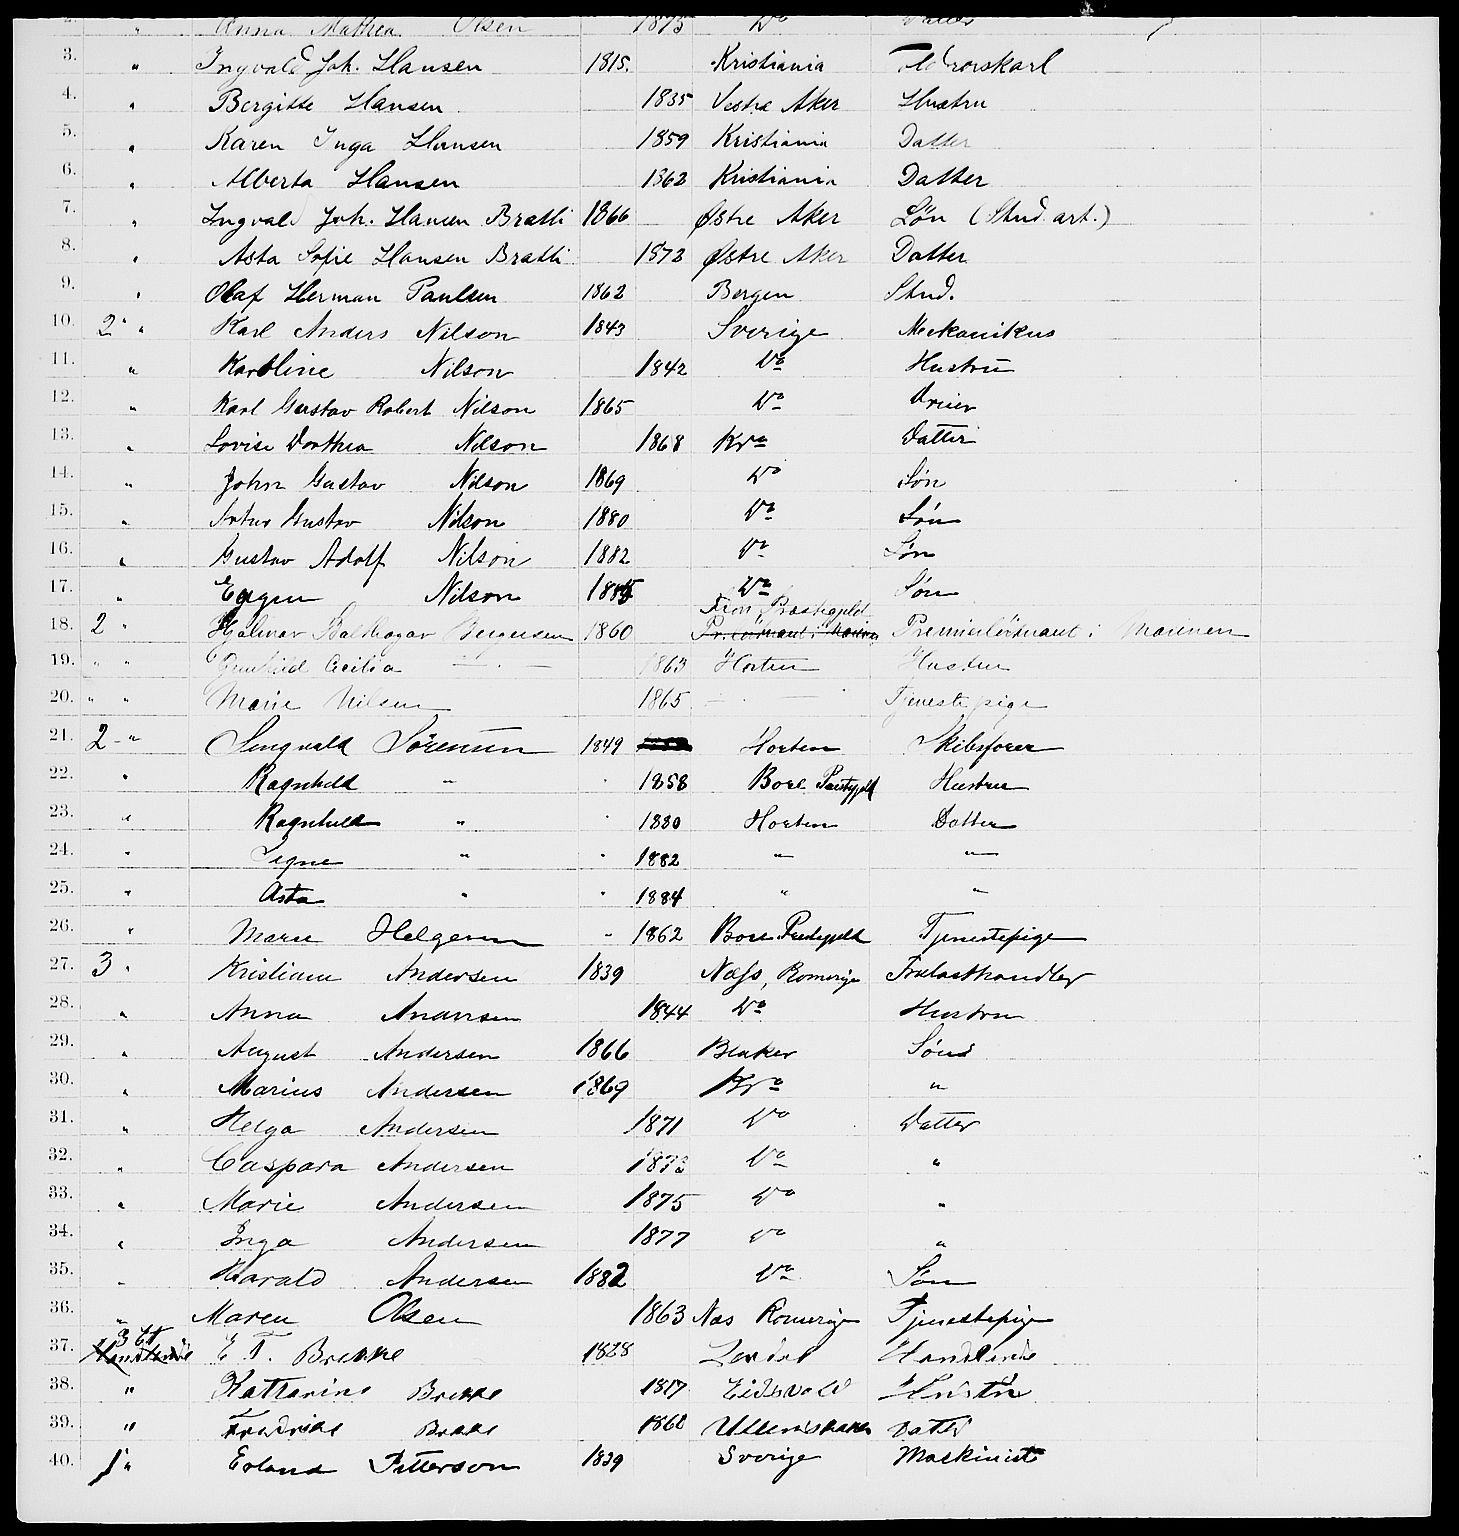 2. " Anna Mathea Olsen 1875 Do Datter
3. " Ingvald Joh. Hansen 1815. Kristiania
4. " Bergitte Hansen 1835 Vestre Aker Hustru
5. " Karen Inga Hansen 1859 Kristiania Datter
6. " Alberta Hansen 1862 Kristiania Datter
7. " Ingvald Joh. Hansen Bratli 1866 Østre Aker Søn (Stud. art.)
8. " Asta Sofie Hansen Bratli 1872 Østre Aker Datter
9. " Olaf Herman Paulsen 1862 Bergen Stud.
10. 2 " Karl Anders Nilson 1843 Sverige Mekanikus
11. " Karoline Nilson 1842 Do Hustru
12. " Karl Gustav Robert Nilson 1865 Do Dreier
13. " Lovise Dorthea Nilson 1868 Kra Datter
14. " John Gustav Nilson 1869 Do Søn
15. " Artur Gustav Nilson 1880 Do Søn
16. " Gustav Adolf Nilson 1882 Do Søn
17. " Eugen Nilson 1885 Do Søn
18. 2 " Halmar Balthazar Bergersen 1860 Præstegjeld Pr. løitnant i Marinen Premierløitnant i Marinen
19. " " Gunhild Cecilia — " — 1863 Horten Hustru
20. " " Marie Nilsen 1865 — " — Tjenestepige
21. 2 - " Sørensen 1849 Horten Skibsfører
22. " Ragnhild " " 1858 Borre Præstegjeld Hustru
23. " Ragnhild " " 1880 Horten Datter
24. " Signe " " 1882 " "
25. " Asta " " 1884 " "
26. " Marie Helgesen " 1862 Borre Præstegjeld Tjenestepige
27. 3 " Kristian Andersen 1839 Næss, Romerige Trælasthandler
28. " Anna Andersen 1844 Do Hustru
29. " August Andersen 1866 Blaker Søn
30. " Marius Andersen 1869 Kra "
31. " Helga Andersen 1871 Do Datter
32. " Caspara Andersen 1873 Do "
33. " Marie Andersen 1875 Do "
34. " Inga Andersen 1877 Do "
35. " Harald Andersen 1882 Do Søn
36. " Maren Olsen 1863 Næs Romerige Tjenestepige
37. 3 Et Handlende E T. Brekke 1828 Handlende
38. " Katharine Brekke 1817 Eidsvold Hustru
39. " Fredrikke Brekke 1862 Ullensaker Datter
40. 1 " Erland Petterson 1839 Sverige Maskinist